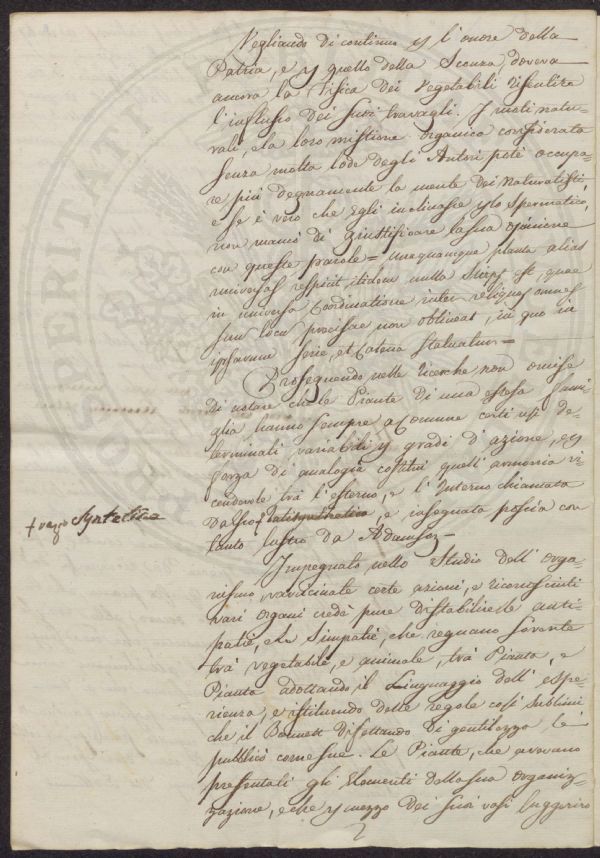 Vegliando di continuo p l'onore della
Patria, e p quello della Scienza doveva
ancora la Fisica dei Vegetabili risentire
l'influsso dei suoi travagli. I moti natu-
rali, e la loro mistione organica considerata
senza molta lode degli Autori potè occupa-
re più degnamente la mente dei Naturalisti,
e se è vero che egli inclinasse p lo spermatico,
non mancò di giustificare la sua opinione
con queste parole = unaquaeque planta alias
universas respicit, itidem nulla stirps est, quae
in universa coordinatione inter reliquas omnes
suum locum precise non obtineat, in quo in
ipsarum serie, et catena statuatur =
Proseguendo nelle ricerche non omise
di notare che le Piante di una estesa fami-
glia hanno sempre a comune certi usi de-
terminati variabili p gradi d'azione, ed
forza di analogia costituì quell'armonia vi-
cendevole trà l'esterno, e l'interno chiamata
dalso, e insegnata poscia con
+ Syntetica
tanto lustro da Adanson =
Impegnato nello Studio dell'orga-
nismo, certe azioni, e riconosciuti
vari organi credè pure di stabilire le anti-
patie, e le simpatie, che regnano sovente
trà vegetabile, e animale, trà Pianta, e
Pianta adottando il Linguaggio dell'espe-
rienza, e istituendo delle regole così sublimi
che il Bonnet difettando di gentilezza le
pubblicò come sue. Le Piante, che avevano
presentati gli elementi della sua organiz-
zazione, e che p mezzo dei suoi vasi suggerirò
2